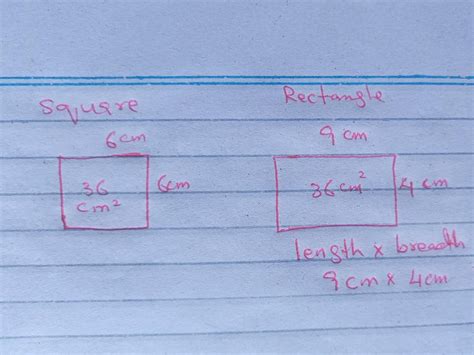 Square
6cm
36
cm²
6cm
Rectangle
9 cm
36 cm²
4 cm
length x breadth
9 cm x 4cm